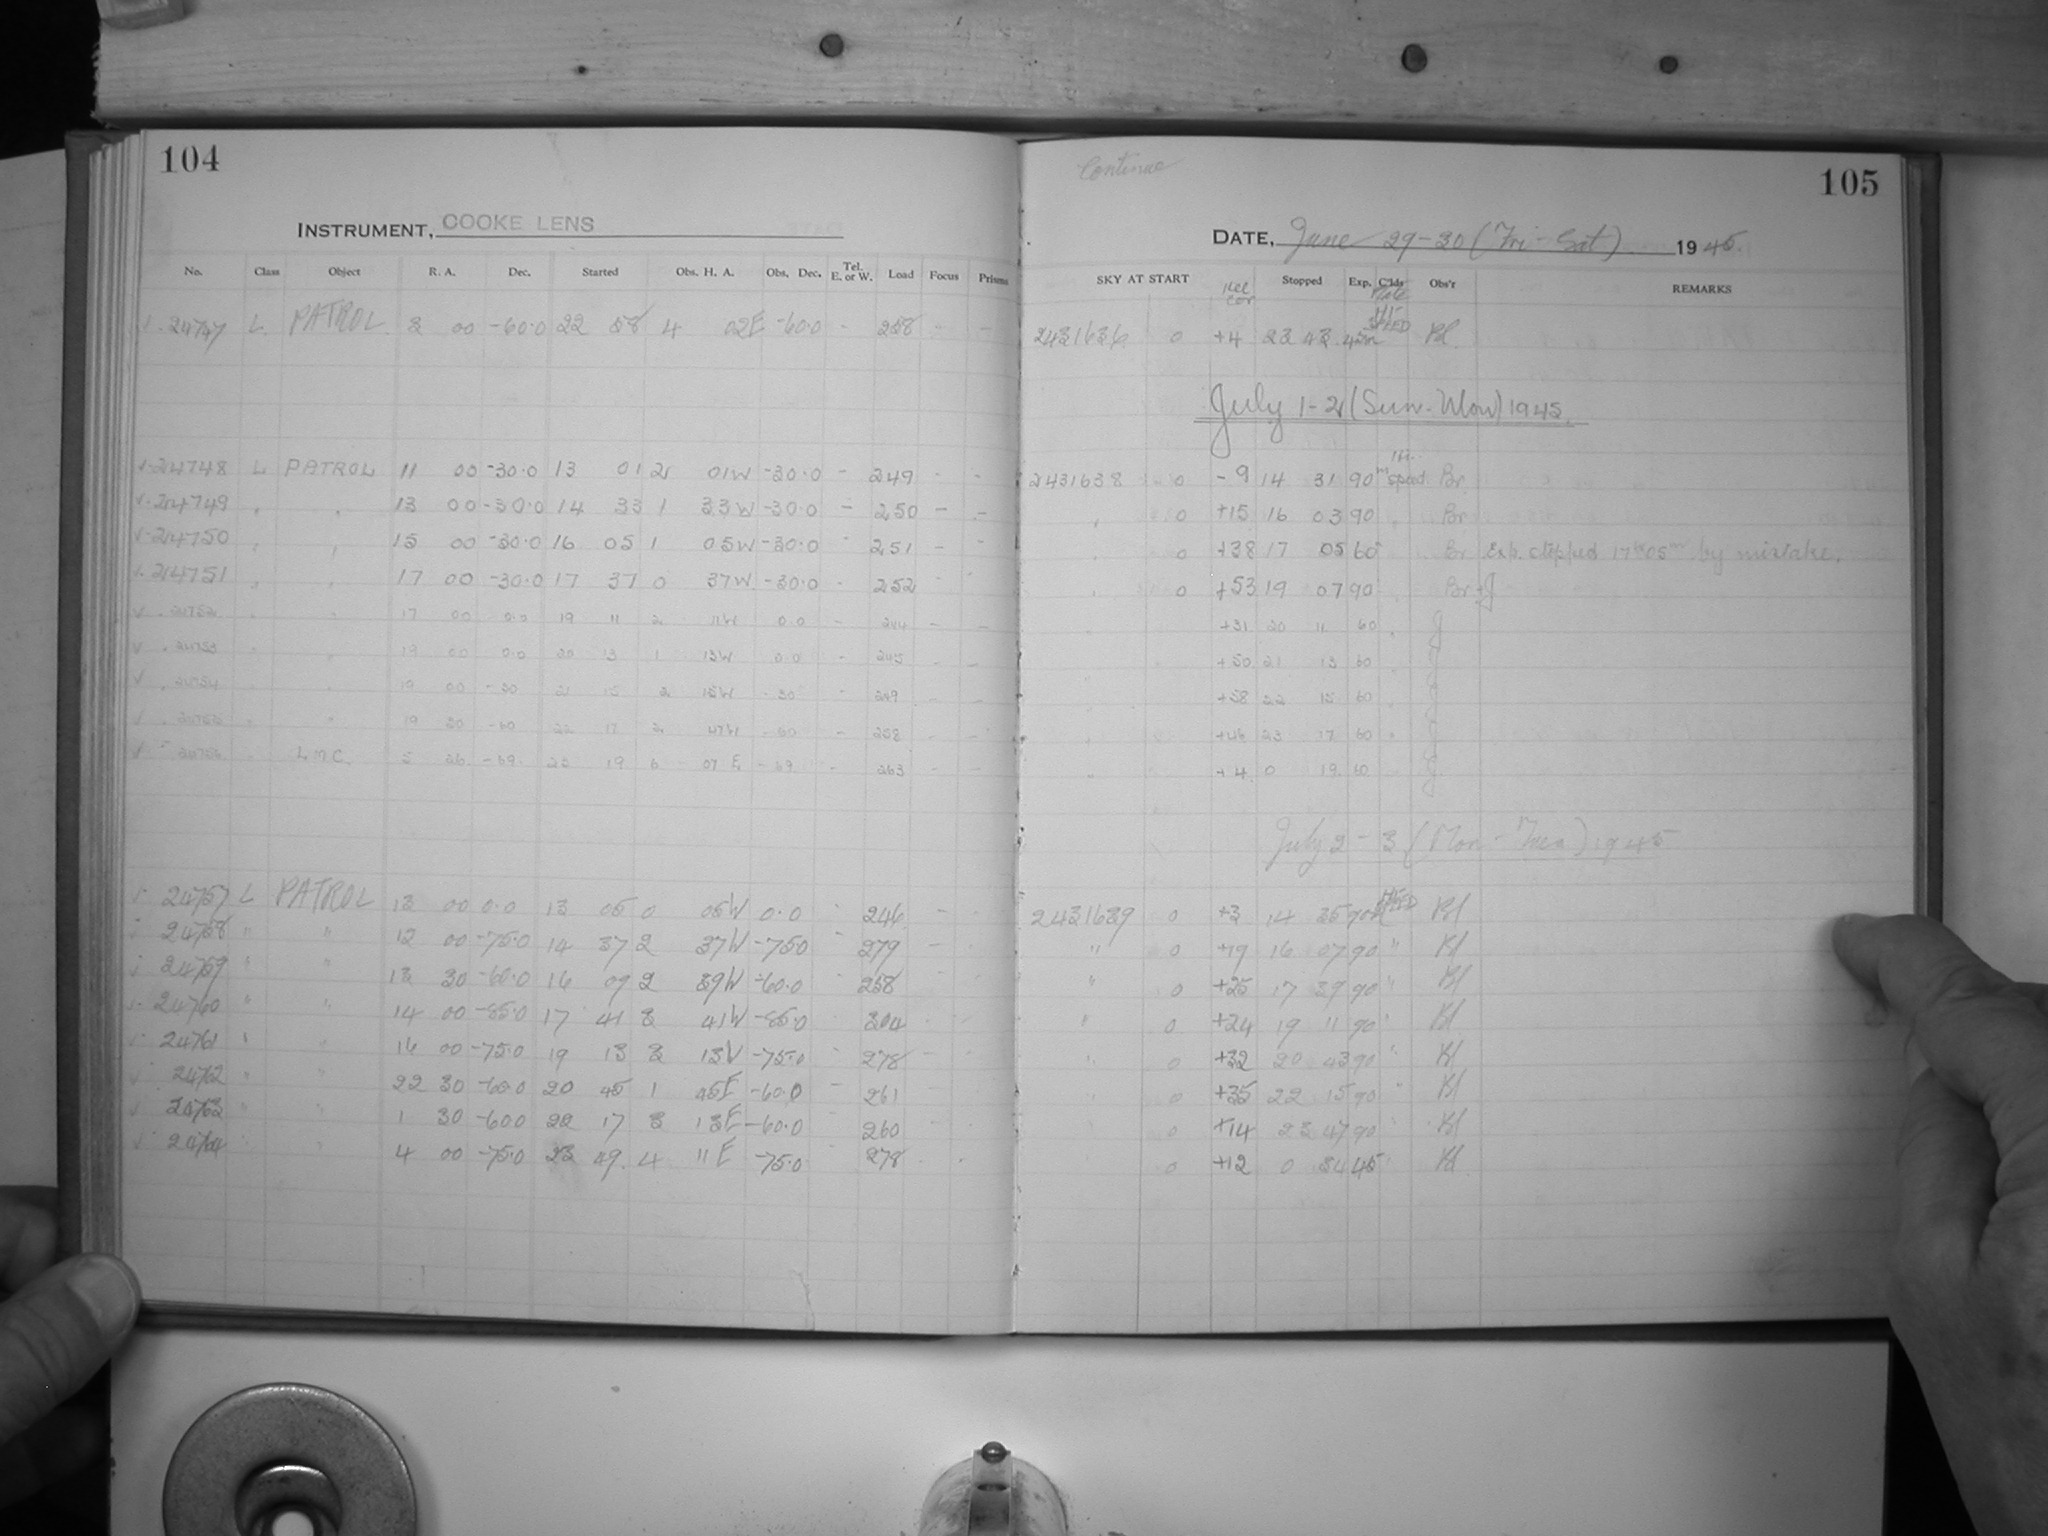 104
INSTRUMENT, COOKE LENS
No. Class Object R. A. Dec. Started Obs. H. A. Obs. Dec. Tel. E. or W. Load Focus Prisms
24747 L. PATROL 3 00 -60.0 22 58 4 02E -60.0 - 258 - -
24748 L PATROL 11 00 -30.0 13 01 2 01W -30.0 - 249 - -
24749 " " 13 00 -30.0 14 33 1 33W -30.0 - 250 - -
24750 " " 15 00 -30.0 16 05 1 05W -30.0 - 251 - -
24751 " " 17 00 -30.0 17 37 0 37W -30.0 - 252 - -
24752 " " 17 00 0.0 19 11 2 11W 0.0 - 244 - -
24753 " " 19 00 0.0 20 13 1 13W 0.0 - 245 - -
24754 " " 19 00 -30 21 15 2 15W -30 - 249 - -
24755 " " 19 30 -60 22 17 2 47W -60 - 258 - -
24756 " L.M.C. 5 26 -69. 23 19 6 07 E -69 - 263 - -
24757 L PATROL 13 00 0.0 13 05 0 05W 0.0 - 246 - -
24758 " " 12 00 -75.0 14 37 2 37W -75.0 - 279 - -
24759 " " 13 30 -60.0 16 09 2 39W -60.0 - 258 - -
24760 " " 14 00 -85.0 17 41 3 41W -85.0 - 304 - -
24761 " " 16 00 -75.0 19 13 3 13W -75.0 - 278 - -
24762 " " 22 30 -60.0 20 45 1 45E -60.0 - 261
24763 " " 1 30 -60.0 22 17 3 13E -60.0 260
24764 " " 4 00 -75.0 23 49. 4 11E -75.0 278
Continue
105
DATE, June 29-30 (Fri-Sat) 1945.
SKY AT START Stopped Exp. C'lds Obs'r REMARKS
Plate
2431636 0 +4 23 43 45m SPEED Bl.
July 1-2 (Sun-Mon) 1945.
2431638 0 -9 14 31 90m speed Br
" 0 +15 16 03 90 " Br
" 0 +38 17 05 60 " Br Exp. stopped 17 05m by mistake.
" 0 +53 19 07 90 " Br+J
+31 20 11 60 " J
+50 21 13 60 " J
+58 22 15 60 " J
+46 23 17 60 " J
+4. 0 19. 60 J
July 2-3 (Mon-Tues) 1945
2431639 0 +3 14 35 90m SPEED Bl
" 0 +19 16 07 90 " Bl
" 0 +25 17 39 90 " Bl
" 0 +24 19 11 90 " Bl
" 0 +32 20 43 90 " Bl
" 0 +35 22 15 90 " Bl
0 +14 23 47 90 " Bl
0 +12 0 34 45 " Bl